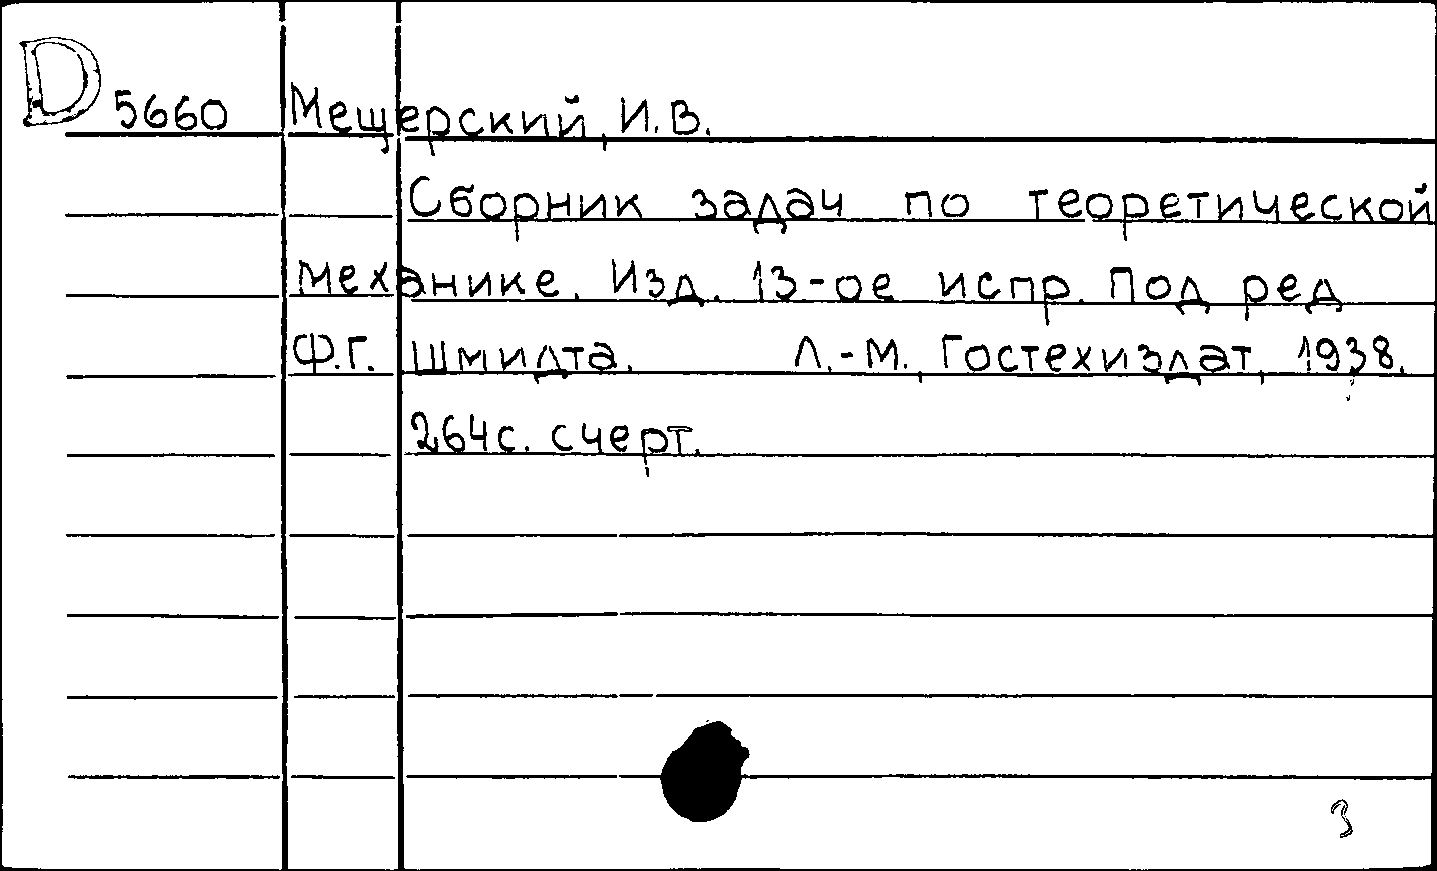 D 5660 Мещерский, И.В.
Сборник задач по теоретической
механике. Изд. 13-ое испр. Под ред
Ф.Г. Шмидта. Л.-М., Гостехиздат, 1938.
264с. счерт.
3